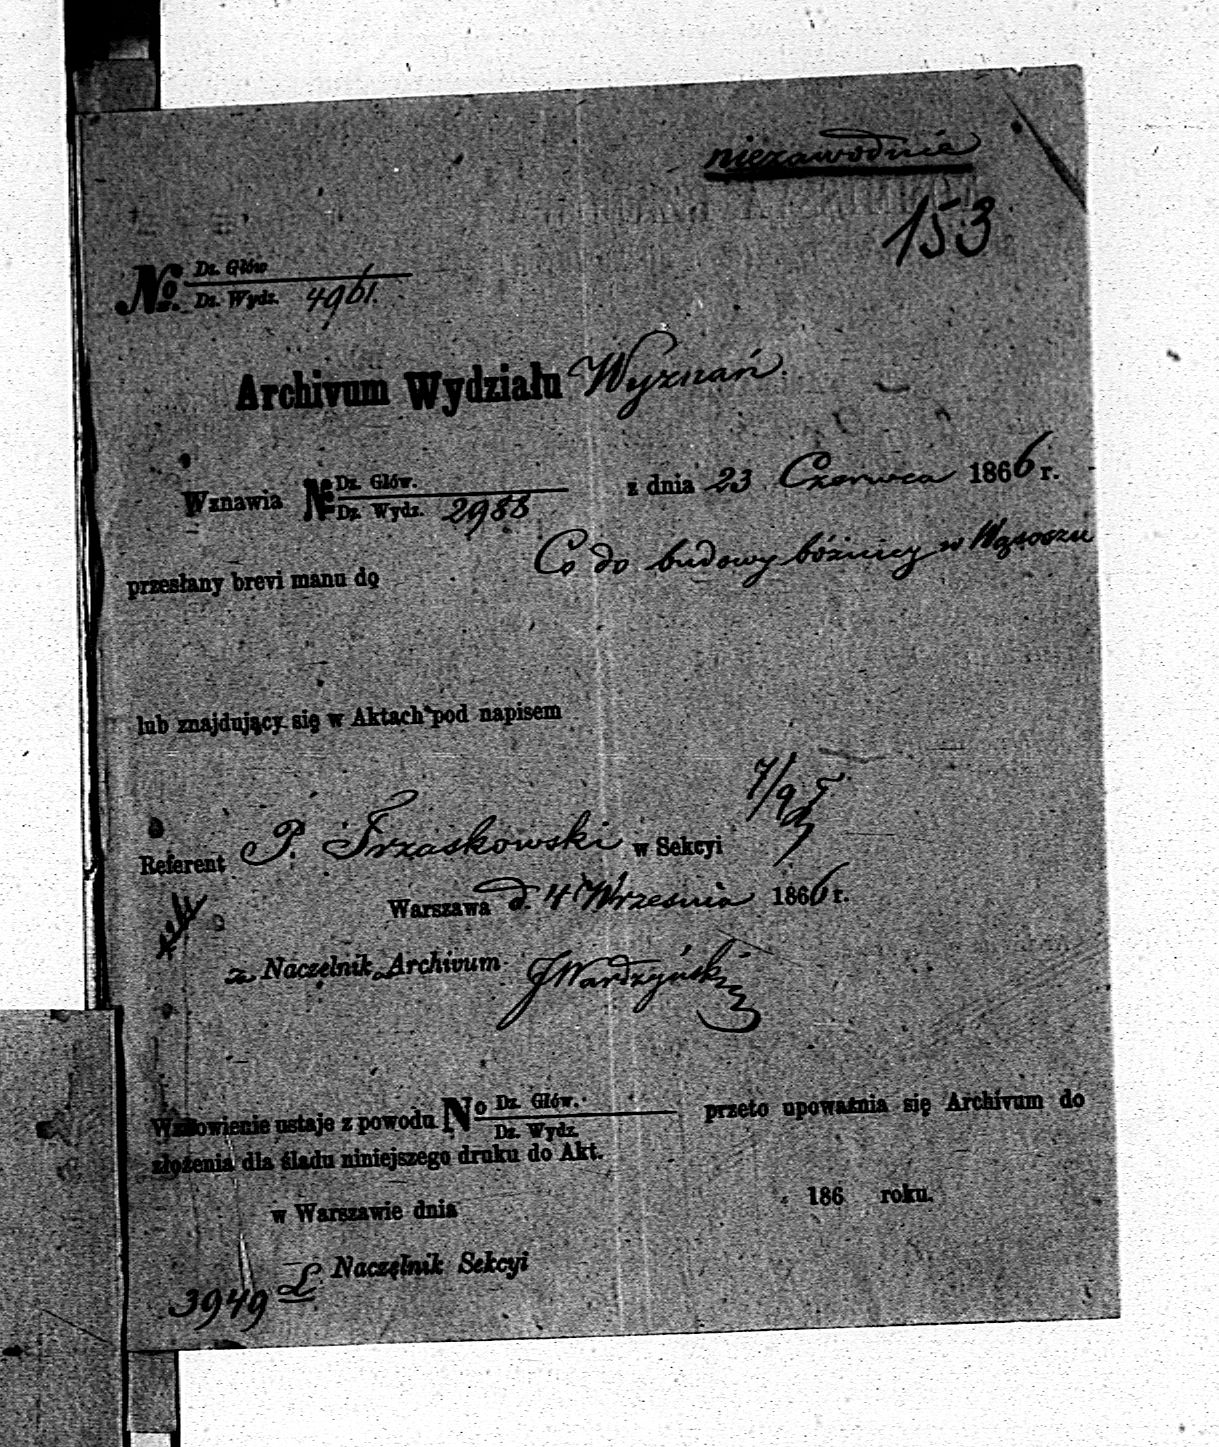 niezawodnie
153
No. Dz. Głów
Dz. Wydz. 4961.
Archivum Wydziału Wyznań.
Wznawia № Dz. Głów. z dnia 23 Czerwca 1866 r.
Dz. Wydz. 2988
przesłany brevi manu do Co do budowy bóżnicy w Wąsoszu
lub znajdujący się w Aktach pod napisem
7/9
Referent P. Trzaskowski w Sekcyi
Warszawa d. 4 Września 1866 r.
z Naczelnik Archivum JWardzyński
Wznowienie ustaje z powodu No Dz. Głów. przeto upoważnia się Archivum do
Dz. Wydz.
złożenia dla śladu niniejszego druku do Akt.
w Warszawie dnia 186 roku.
Naczelnik Sekcyi
3949